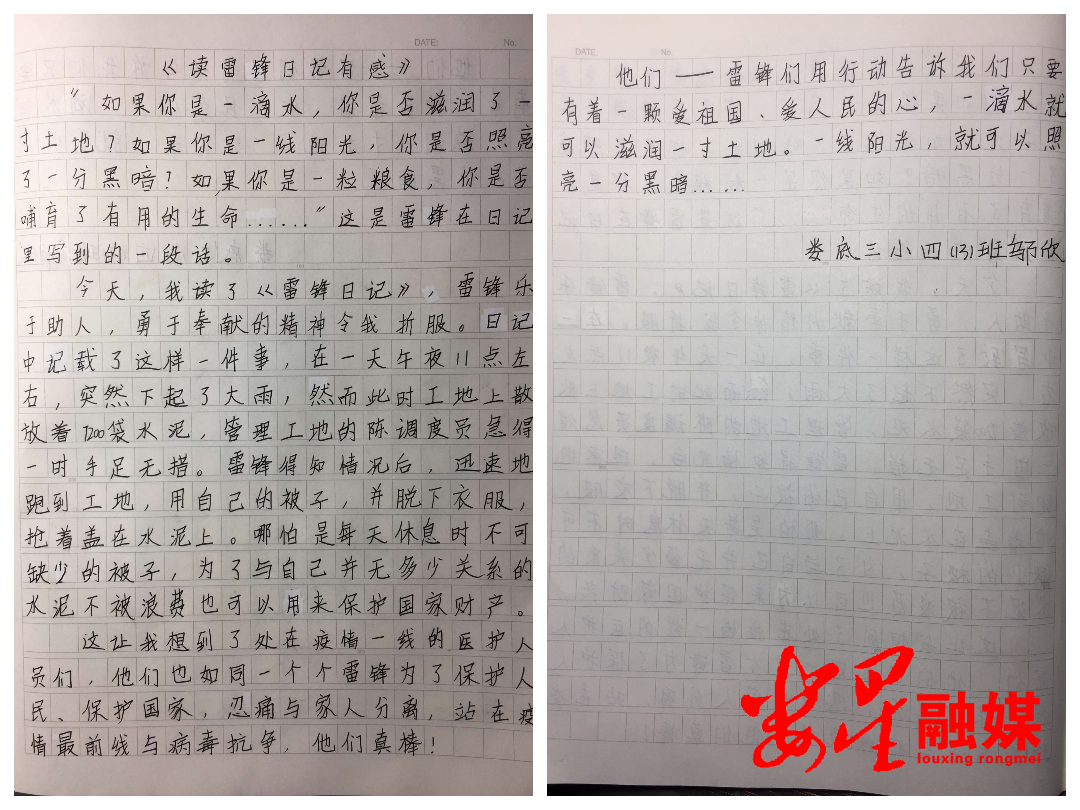 DATE: No.
《读雷锋日记有感》
“如果你是一滴水，你是否滋润了一
寸土地？如果你是一线阳光，你是否照亮
了一分黑暗？如果你是一粒粮食，你是否
哺育了有用的生命……”这是雷锋在日记
里写到的一段话。
今天，我读了《雷锋日记》，雷锋乐
于助人，勇于奉献的精神令我折服。日记
中记载了这样一件事，在一天午夜11点左
右，突然下起了大雨，然而此时工地上散
放着7200袋水泥，管理工地的陈调度员急得
一时手足无措。雷锋得知情况后，迅速地
跑到工地，用自己的被子，并脱下衣服，
抢着盖在水泥上。哪怕是每天休息时不可
缺少的被子，为了与自己并无多少关系的
水泥不被浪费也可以用来保护国家财产。
这让我想到了处在疫情一线的医护人
员们，他们也如同一个个雷锋为了保护人
民、保护国家，忍痛与家人分离，站在疫
情最前线与病毒抗争，他们真棒！
DATE: No.
他们——雷锋们用行动告诉我们只要
有着一颗爱祖国、爱人民的心，一滴水就
可以滋润一寸土地。一线阳光，就可以照
亮一分黑暗……
娄底三小四(13)班邹欣
娄星融媒
louxing rongmei